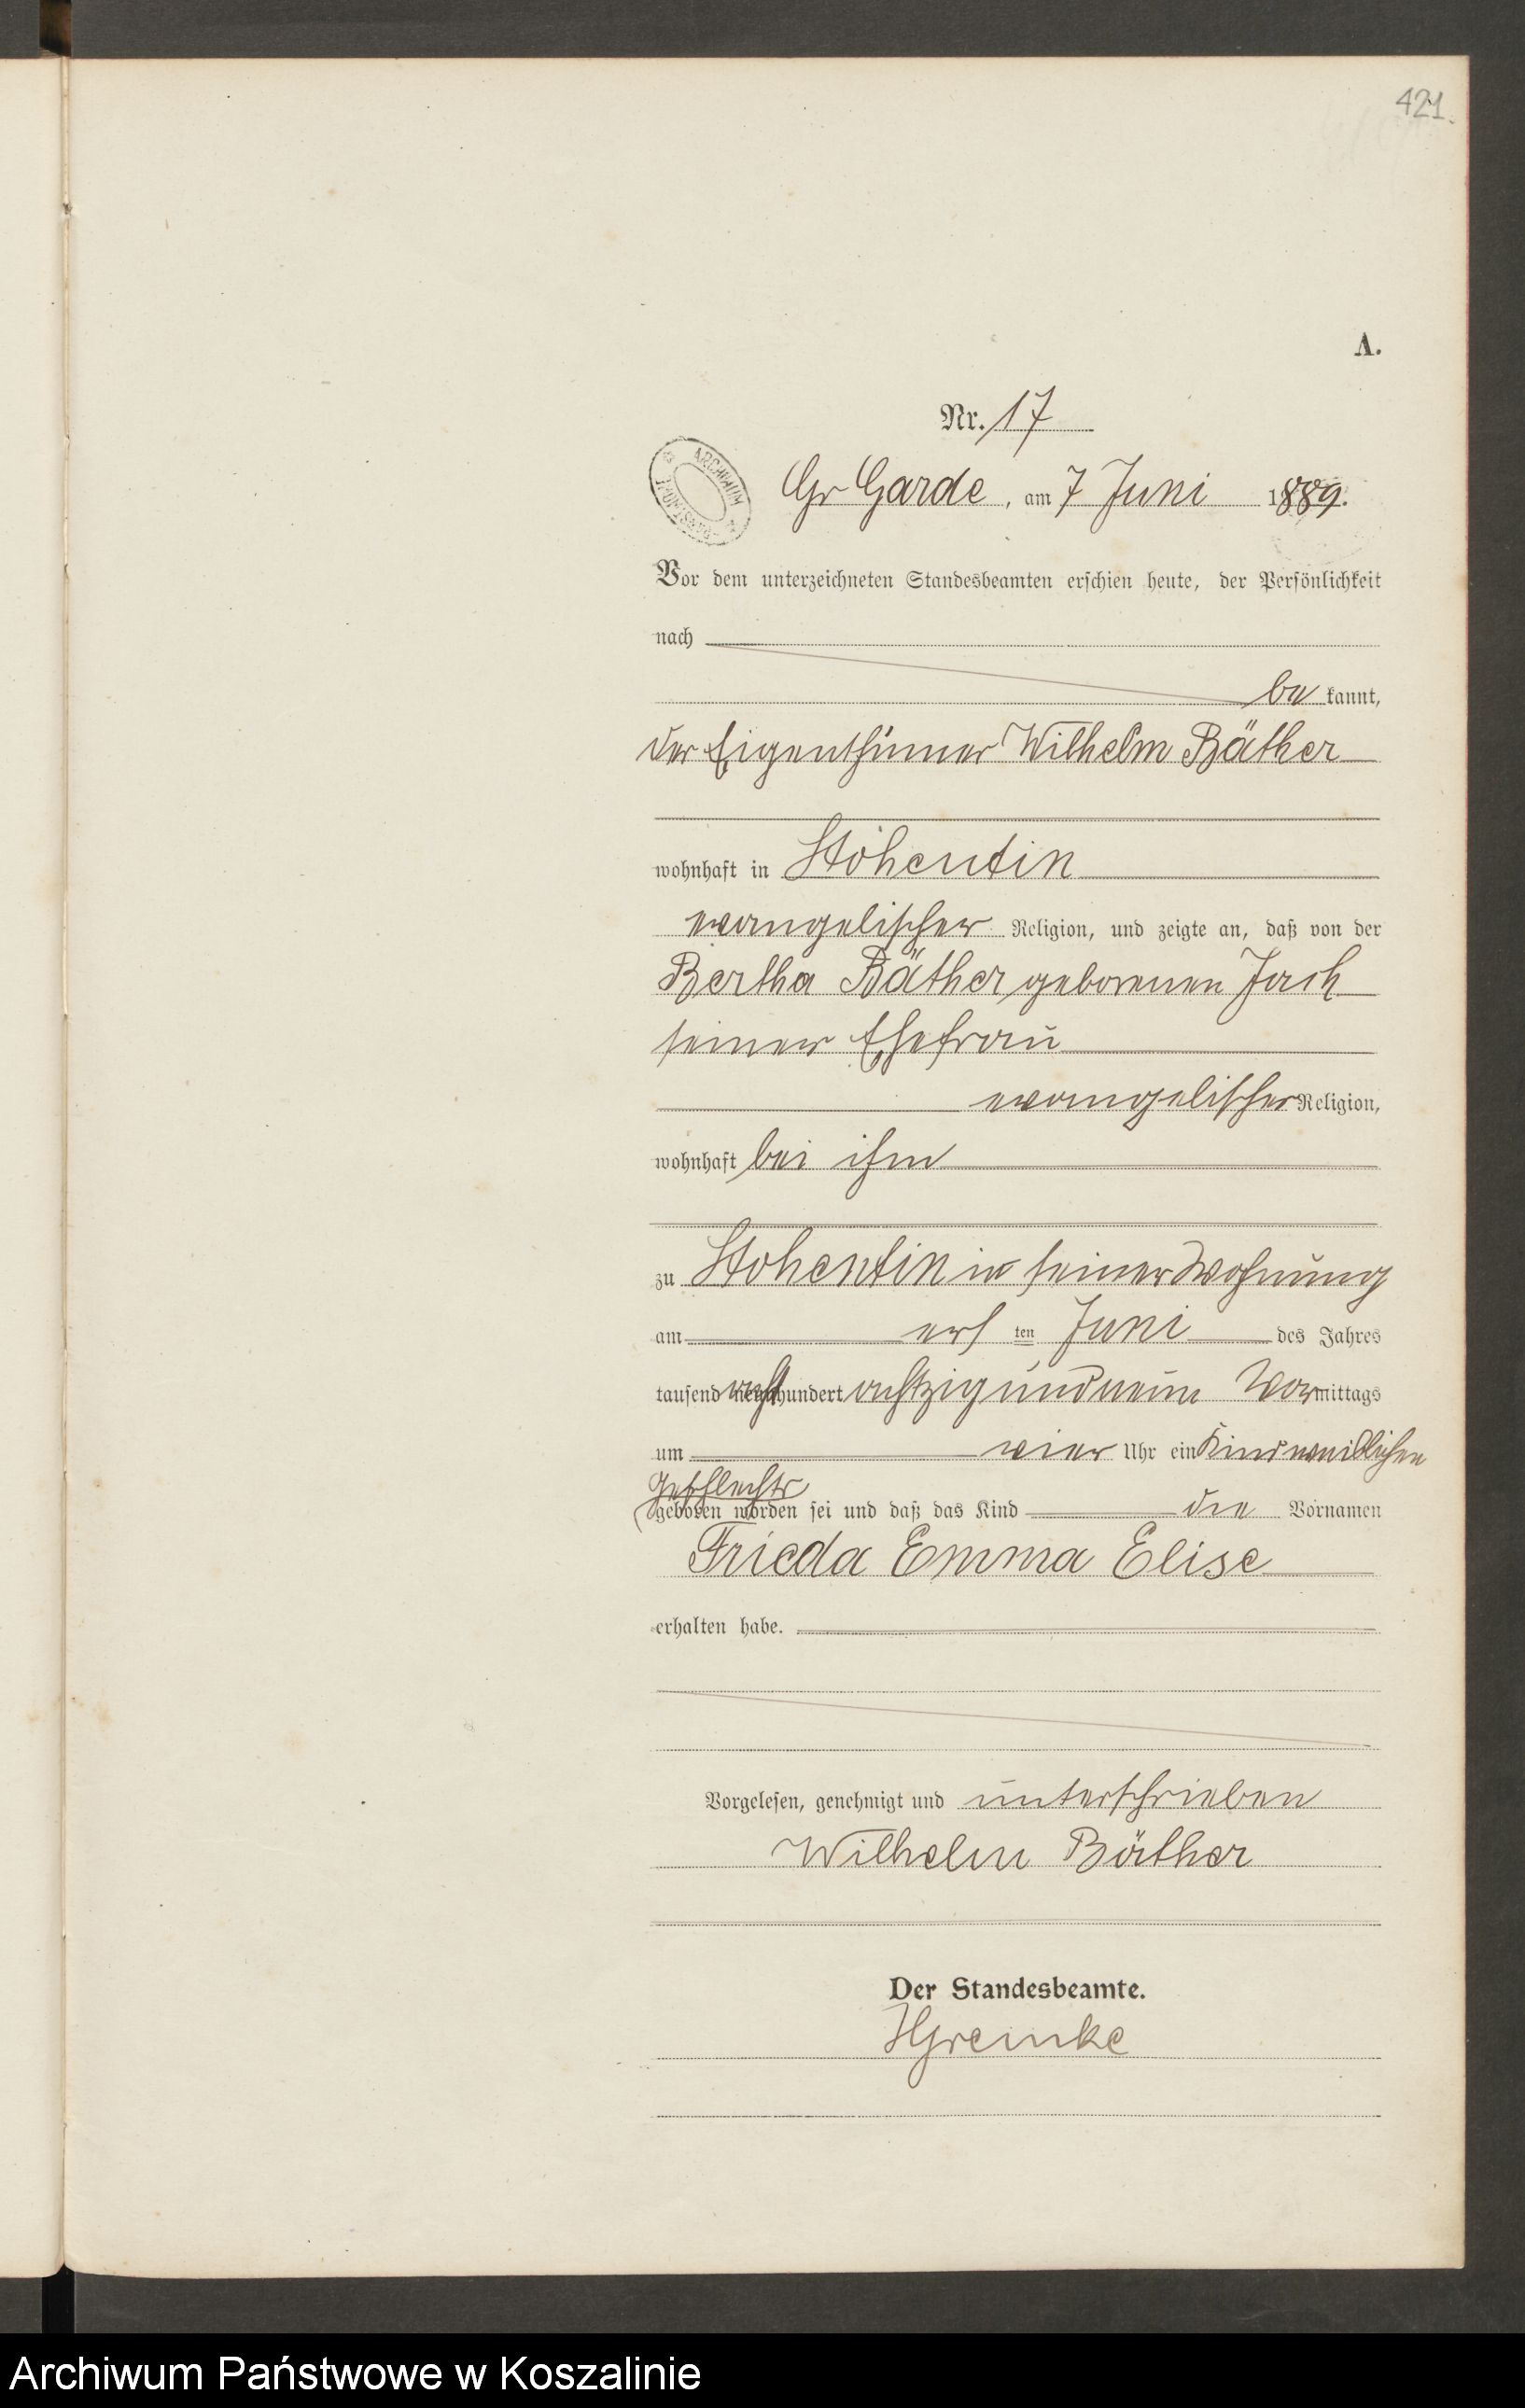 421.
A.
Nr. 17
ARCHIWUM
Gr Garde, am 7 Juni 1889.
Vor dem unterzeichneten Standesbeamten erschien heute, der Persönlichkeit
nach
be kannt,
der Eigenthümer Wilhelm Räther
wohnhaft in Stohentin
evangelischer Religion, und zeigte an, daß von der
Bertha Räther geborenen Jach
seiner Ehefrau
evangelischer Religion,
wohnhaft bei ihm
zu Stohentin in seiner Wohnung
am ersten Juni des Jahres
tausend acht hundert achtzig und neun Vormittags
um vier Uhr ein Kind weiblichen
Geschlechts
geboren worden sei und daß das Kind die Vornamen
Frieda Emma Elise
erhalten habe.
Vorgelesen, genehmigt und unterschrieben
Wilhelm Räther
Der Standesbeamte.
HGreinke
Archiwum Państwowe w Koszalinie